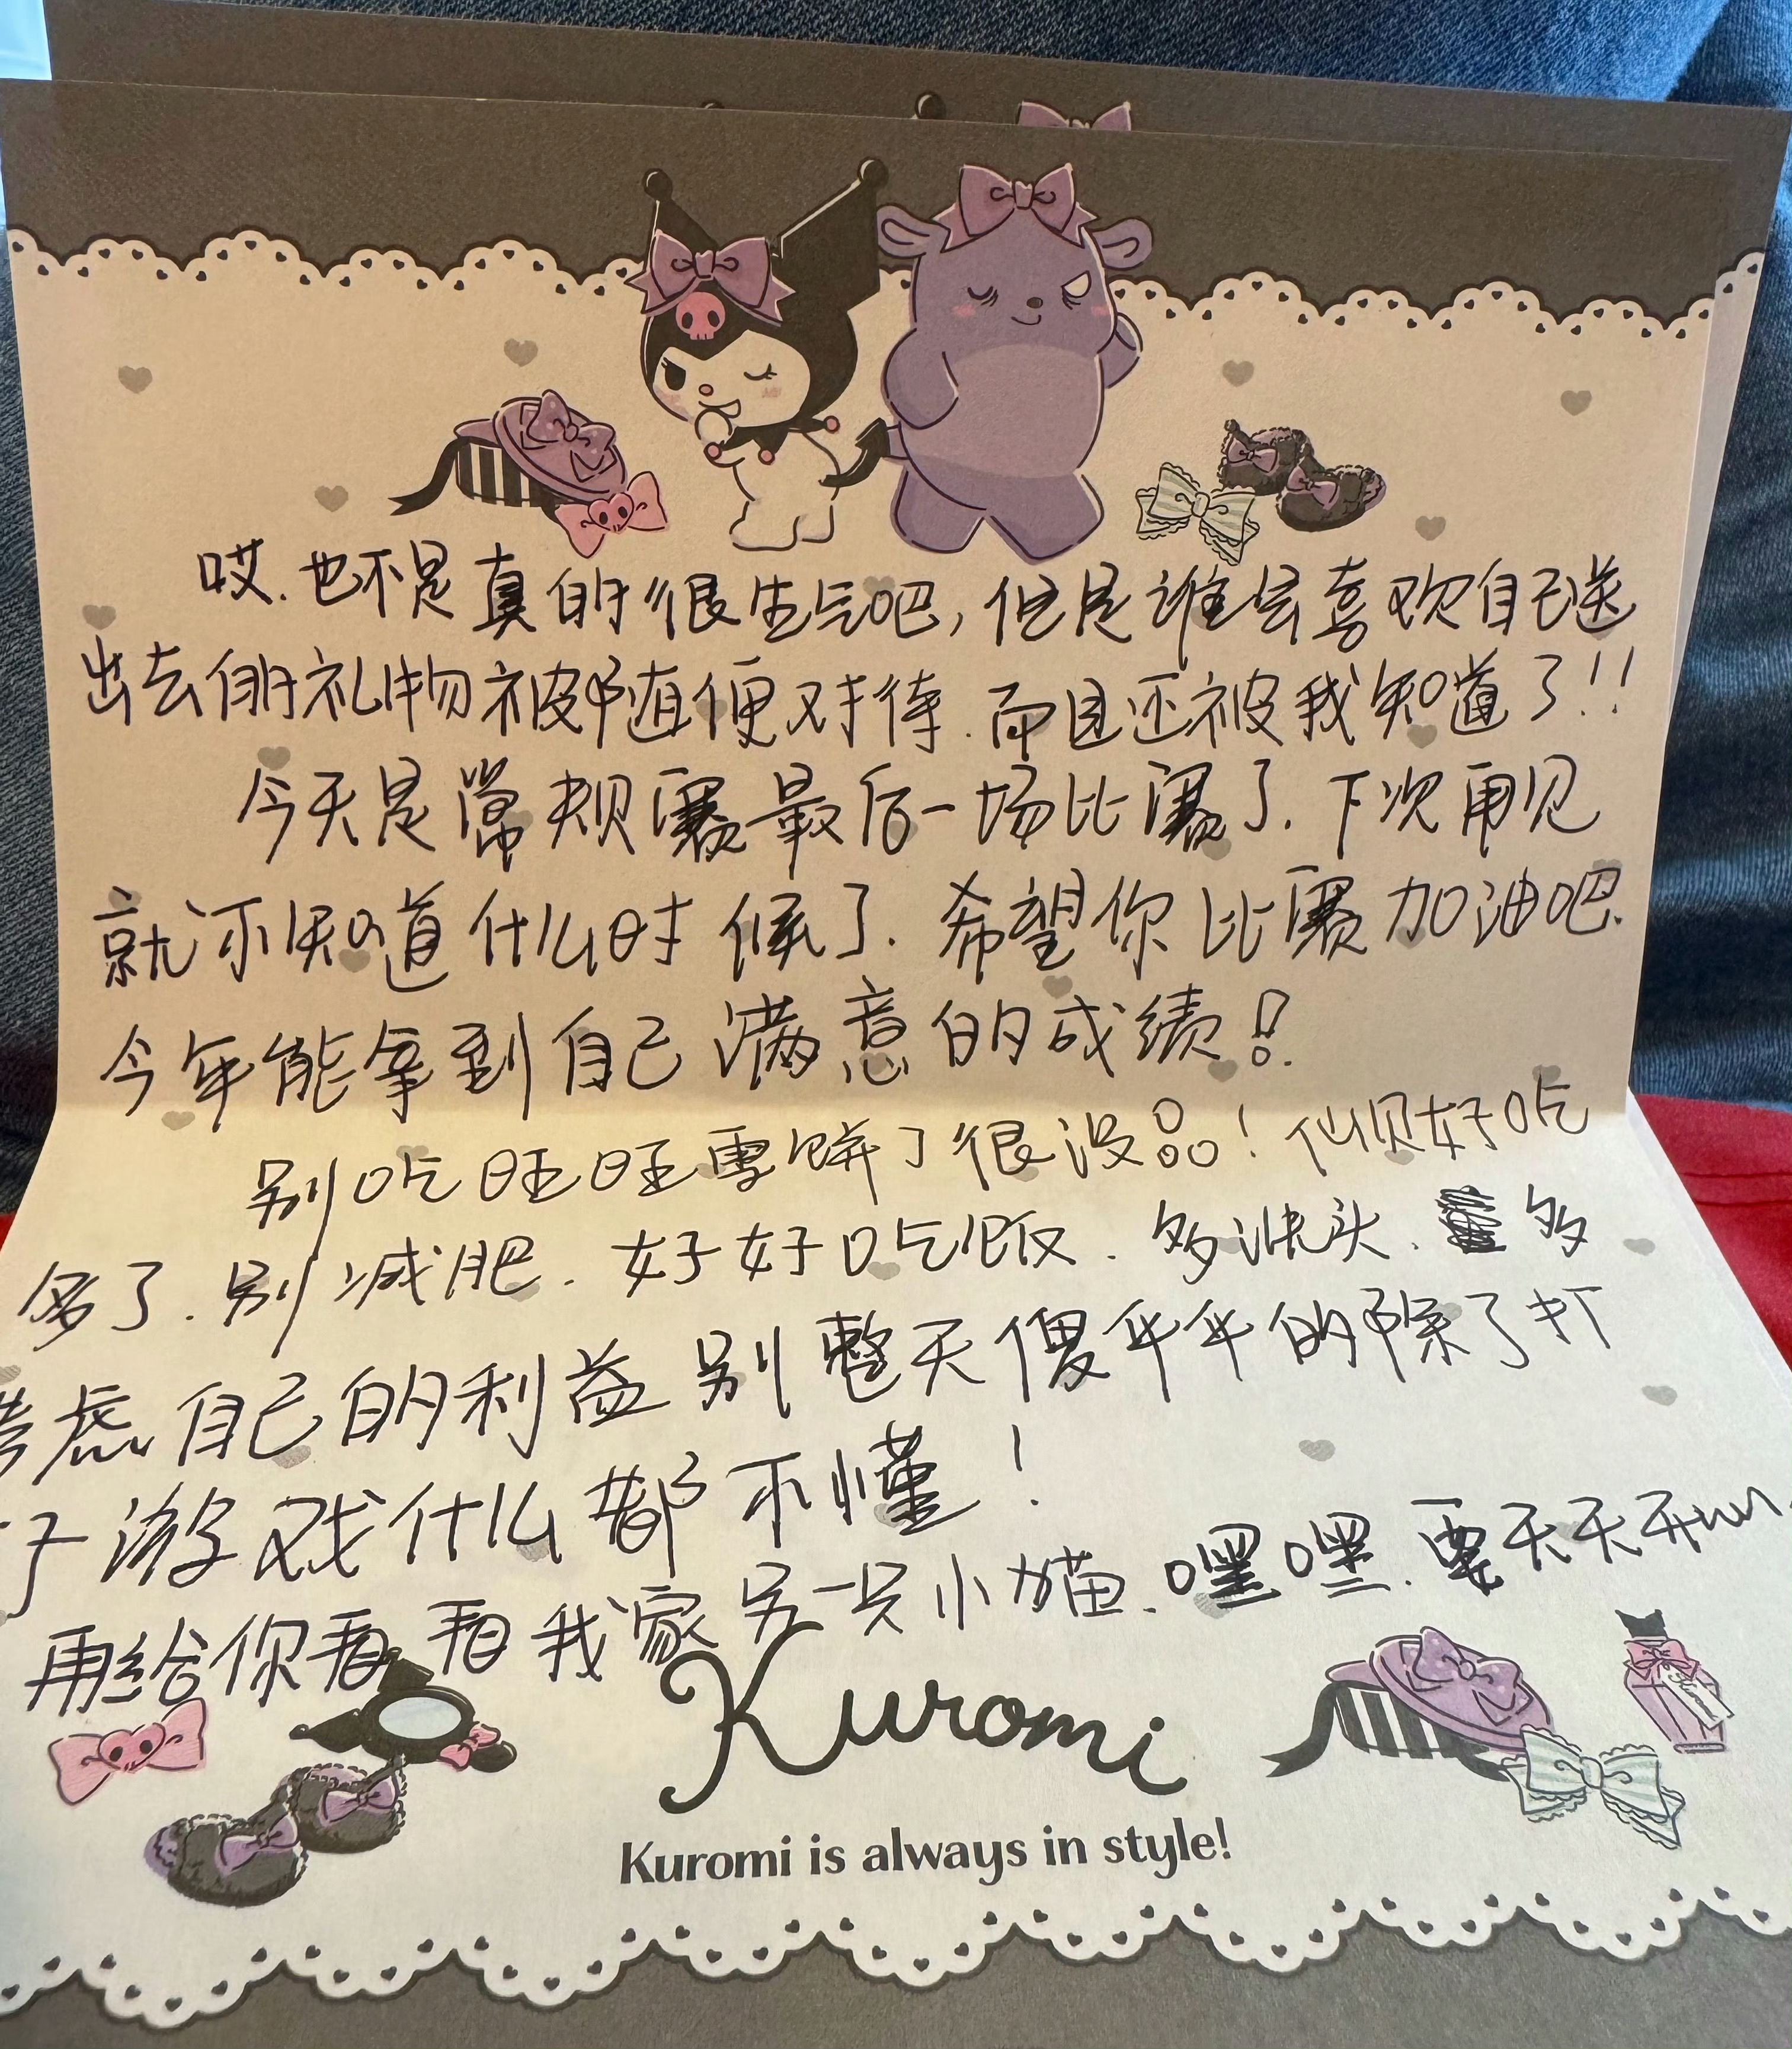 哎.也不是真的很生气吧,但是谁会喜欢自己送
出去的礼物被随便对待.而且还被我知道了!!
今天是常规赛最后一场比赛了.下次再见
就不知道什么时候了.希望你比赛加油吧.
今年能拿到自己满意的成绩!
别吃旺旺雪饼了很没品!仙贝好吃
多了.别减肥.好好吃饭.多洗头.多
考虑自己的利益别整天傻乎乎的除了打
游戏什么都不懂!
再给你看看我家另一只小猫.嘿嘿.要天天开心
Kuromi
Kuromi is always in style!